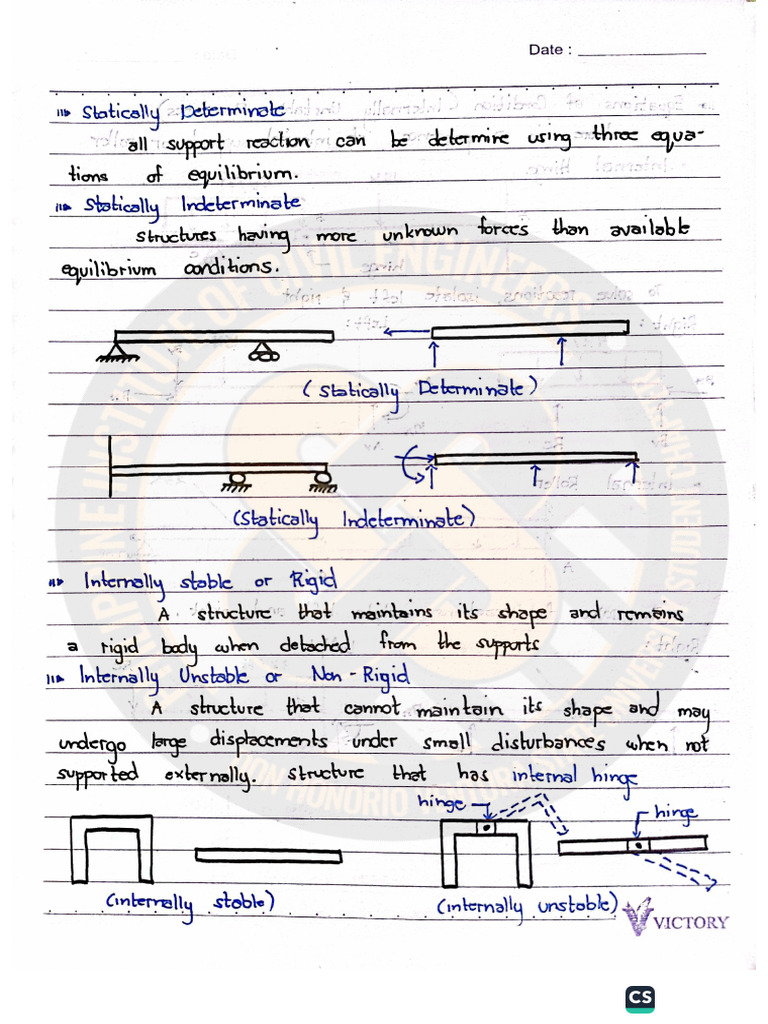 Date :
Statically Determinate
all support reaction can be determine using three equa-
tions of equilibrium.
Statically Indeterminate
structures having more unknown forces than available
equilibrium conditions.
(Statically Determinate)
(Statically Indeterminate)
Internally stable or Rigid
A structure that maintains its shape and remains
a rigid body when detached from the supports
Internally Unstable or Non-Rigid
A structure that cannot maintain its shape and may
undergo large displacements under small disturbances when not
supported externally. structure that has internal hinge
hinge
hinge
(internally stable)
(internally unstable)
VICTORY
CS